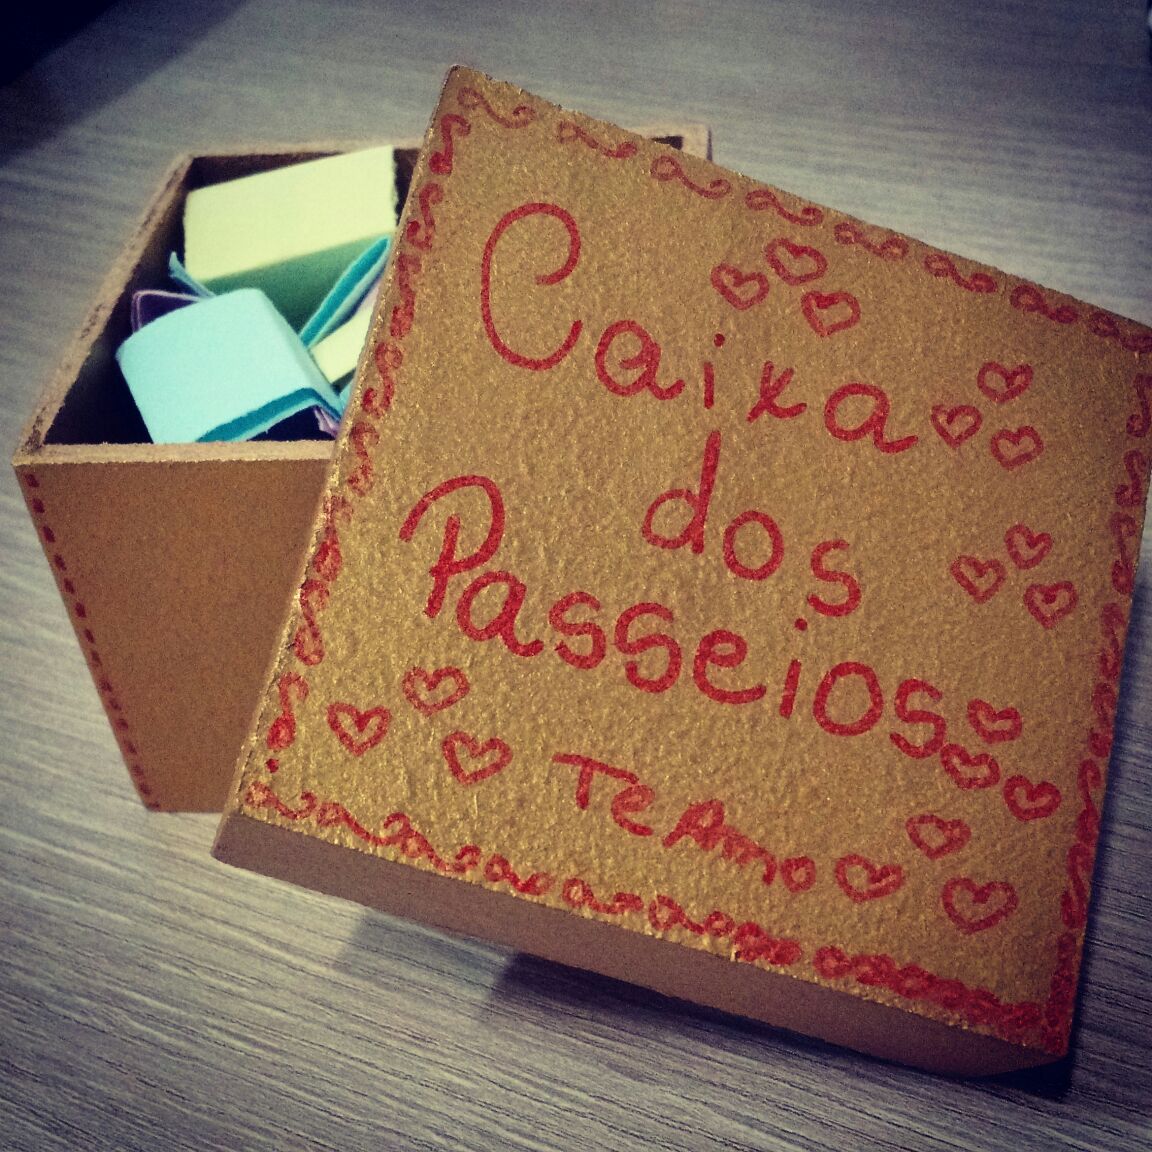 Caixa
dos
Passeios
Te Amo